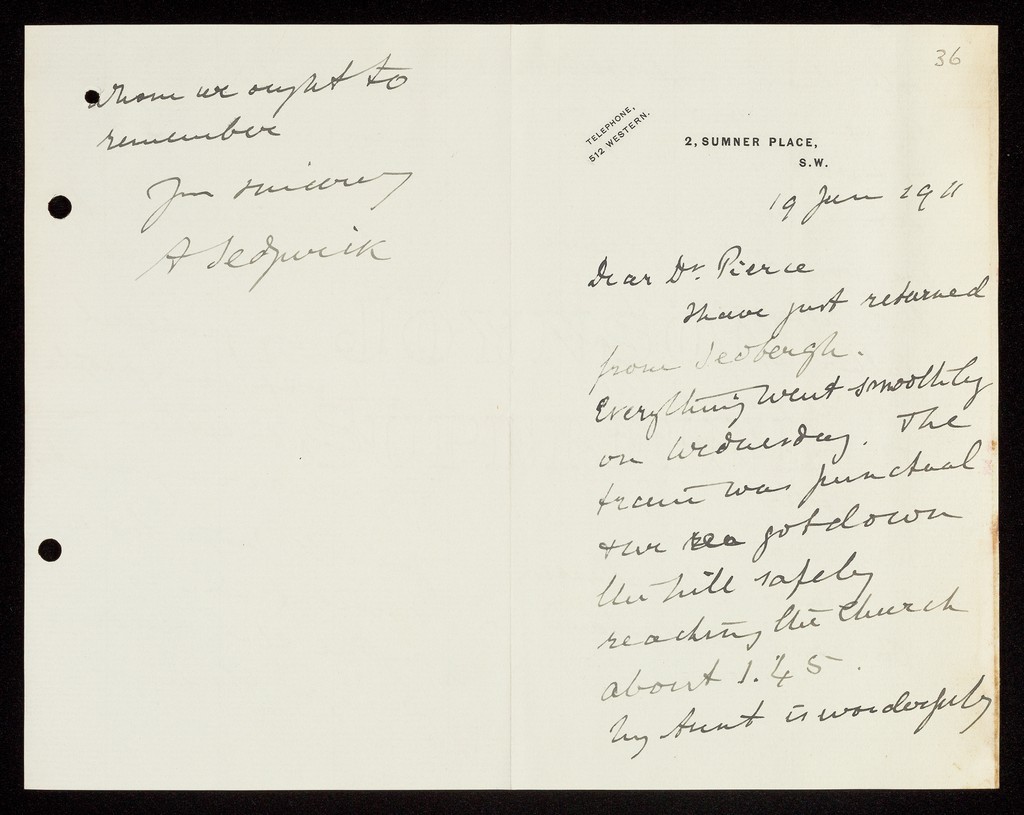 36
TELEPHONE,
512 WESTERN.
2, SUMNER PLACE,
S.W.
19 Jan 1911
Dear Dr. Pierce
I have just returned
from Sedbergh.
Everything went smoothly
on Wednesday. The
train was punctual
& we got down
the hill safely
reaching the Church
about 1.45.
My Aunt is wonderfully
whom we ought to
remember
Yrs sincerely
A Sedgwick